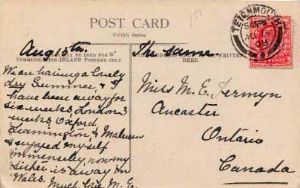 POST CARD
TEIGNMOUTH
Aug 15th
The same
COMMUNICATION—INLAND POSTAGE ONLY
HERE.
We are having a lovely
day Summer, & I
have been away for
weeks, London 3
weeks Oxford
Leamington, & Malvern
& enjoyed myself
immensely, now my
sister is away in
Wales. Much love M. E.
Miss M. E. Fermyn
Ancaster
Ontario
Canada